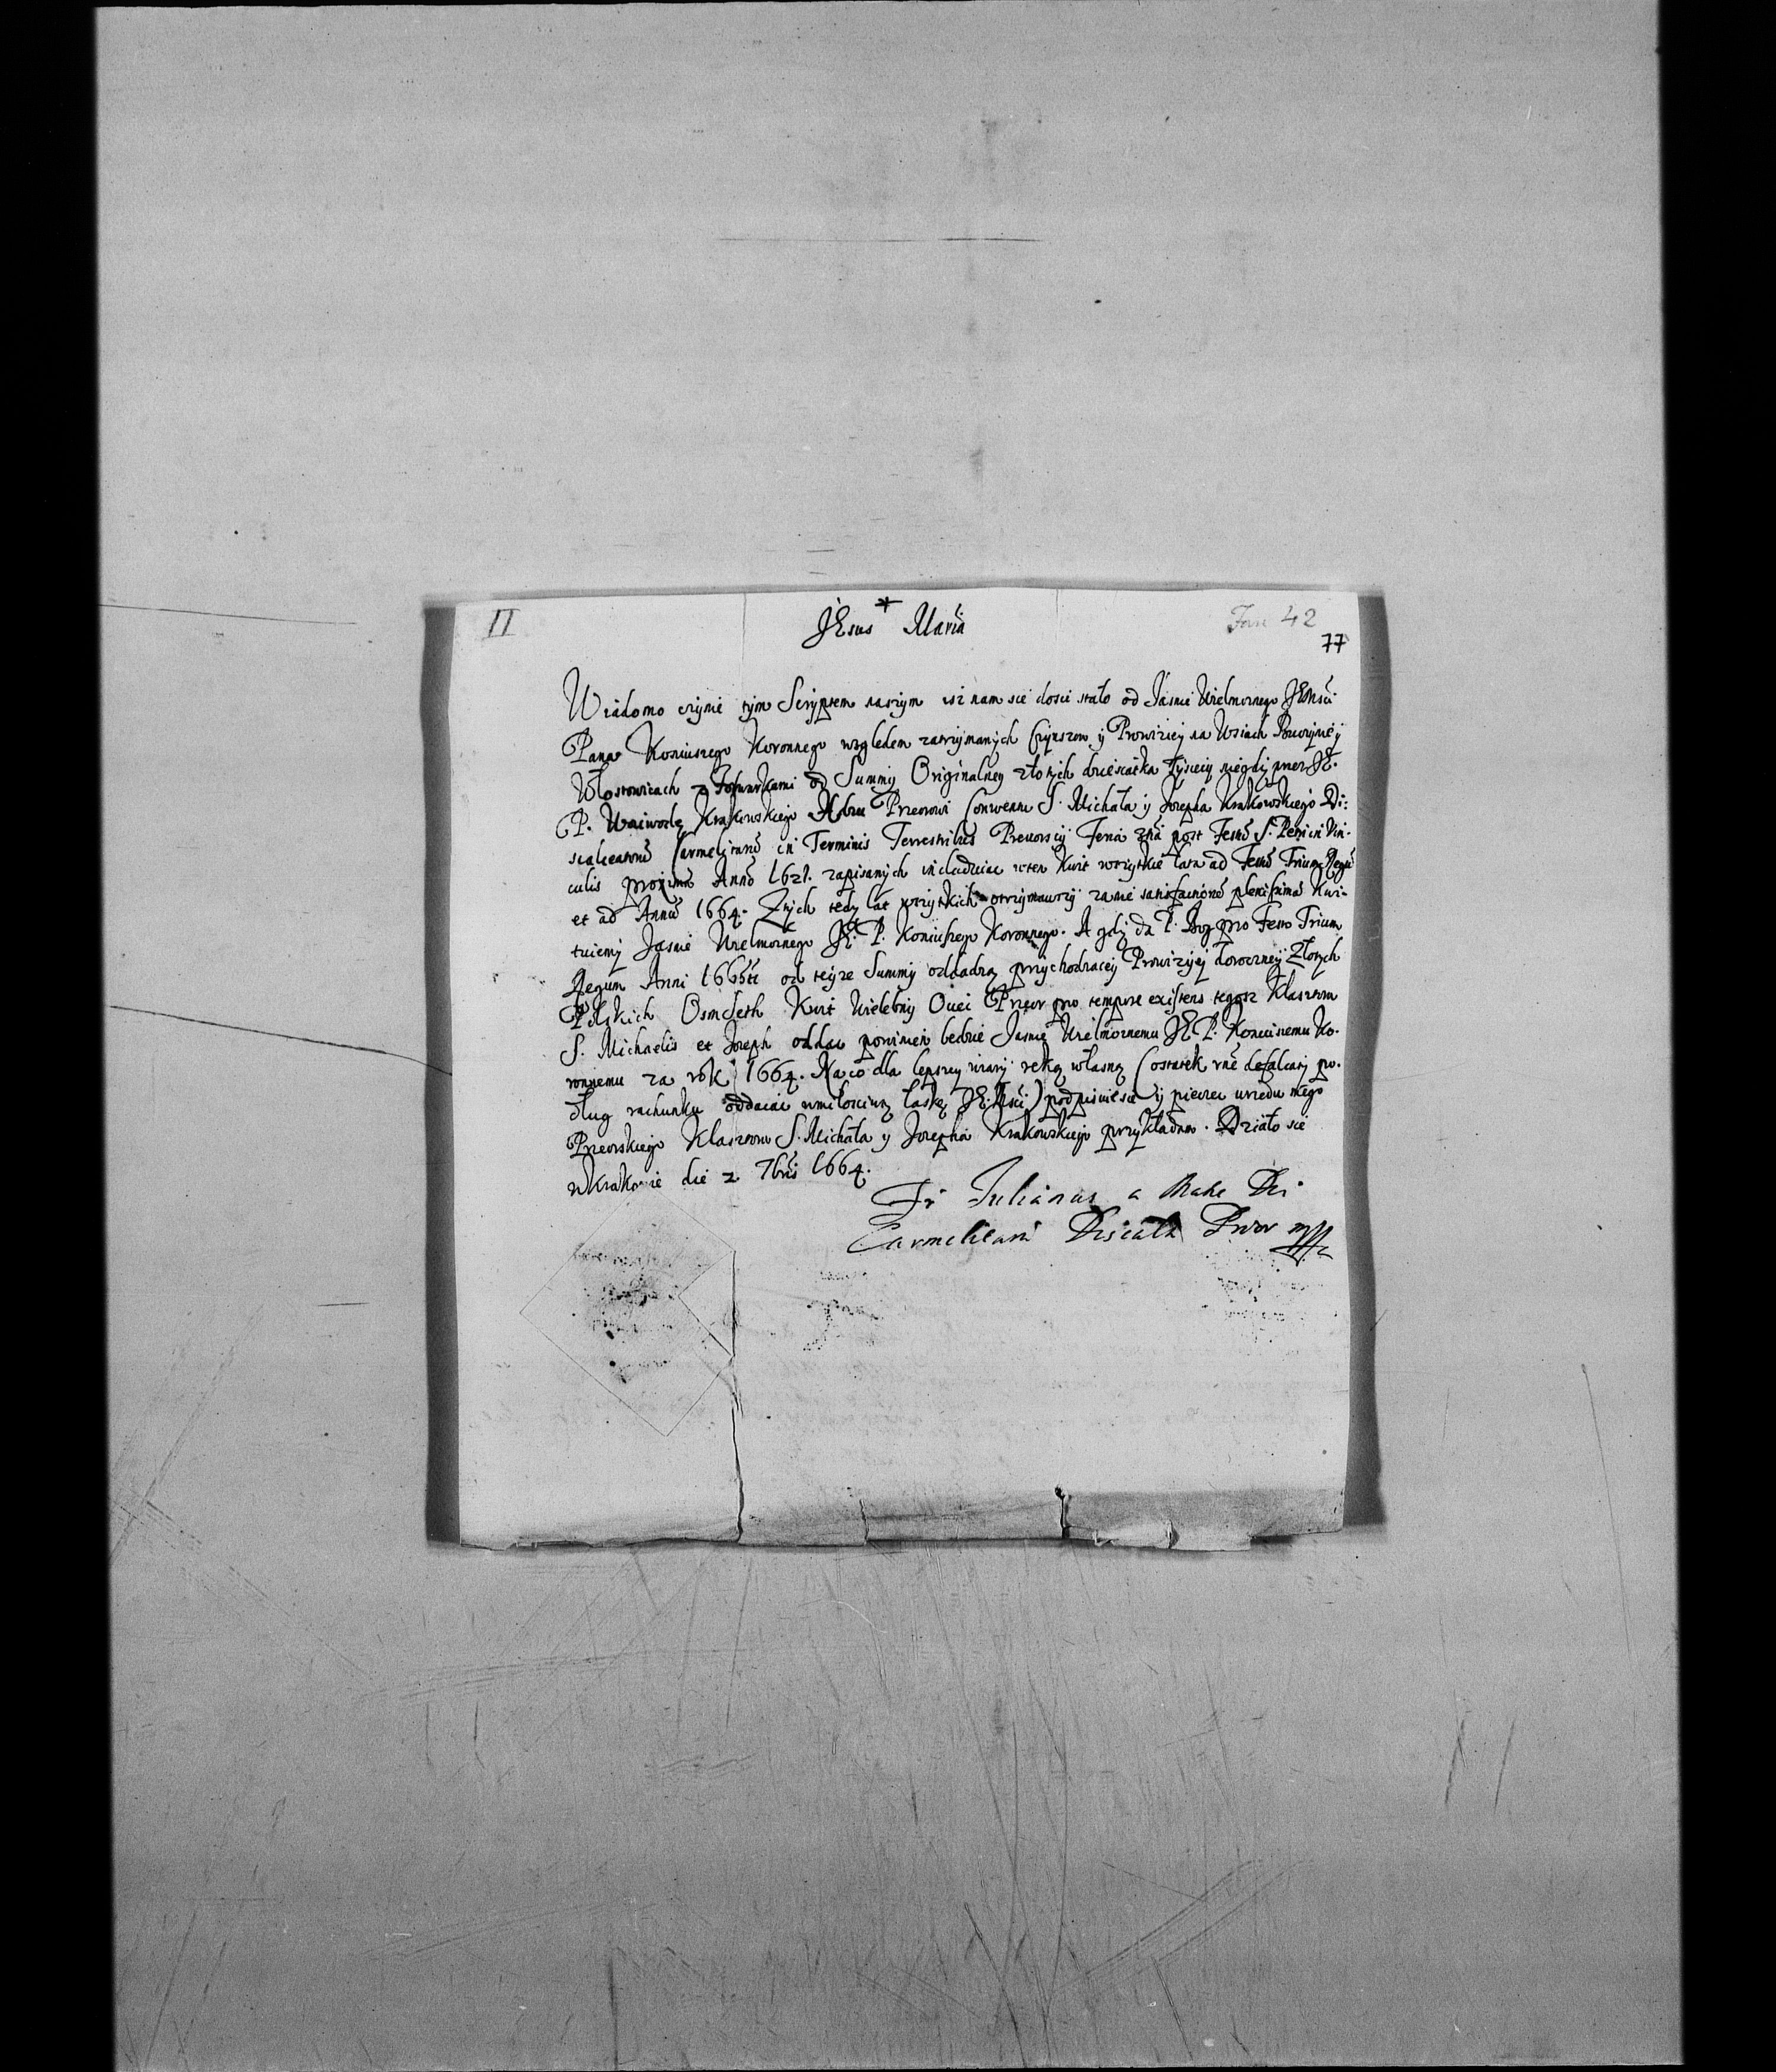 II
Jan 42
77
JEsus * Maria
Wiadomo czynie tym Scryptem naszym isz nam sie dosic stało od Jasnie Wielmoznego JEMsci
Pana Koniuszego Koronnego wzgledem zatrzymanych Czynszow y Prowiziey na Wsiach y
Włostowicach z Folwarkami od Summy Originalney złotych dziesiątka tysięcy niegdy przez JE.
P. Woiwodę Krakowskiego Przeorowi Conventu S. Michała y Jozepha Krakowskiego Di:
scalceatorū Carmelitarū in Terminis Terrestribus Feria 2dā post Festū S. Petri in Vin-
culis proximā Anno 1621. zapisanych includuiąc wten Kwit wszytkie lata ad Festū Trium Regū
et ad Annū 1664. Ztych tedy lat wszytkich otrzymawszy zanie satisfactionē plenissimā Kwi-
tuiemy Jasnie Wielmoznego JE. P. Koniuszego Koronnego. A gdy da P. Bog pro Festo Trium
Regum Anni 1665ti od teyze Summy oddadzą przychodzacey Prowizyey doroczney Złotych
Polskich Osmset Kwit Wielebny Ociec Przeor pro tempore existens tegosz Klasztoru
S. Michaelis et Joseph oddac powinien bedzie Jasnie Wielmoznemu JE. P. Koniuszemu Ko-
ronnemu za rok 1664. Na co dla lepszey wiary ręką własną (ostatek defalcaty po-
dług rachunku oddaiąc wmiłosciwą łaskę JE. Msci) podpisuiesie y pieczec urzedu mego
Przeorskiego Klasztoru S. Michała y Jozepha Krakowskiego przykładam. Działo sie
w Krakowie die 2 7bris 1664.
Fr Julianus a Matre Dei
Carmelitarū Discalc Prior mpp